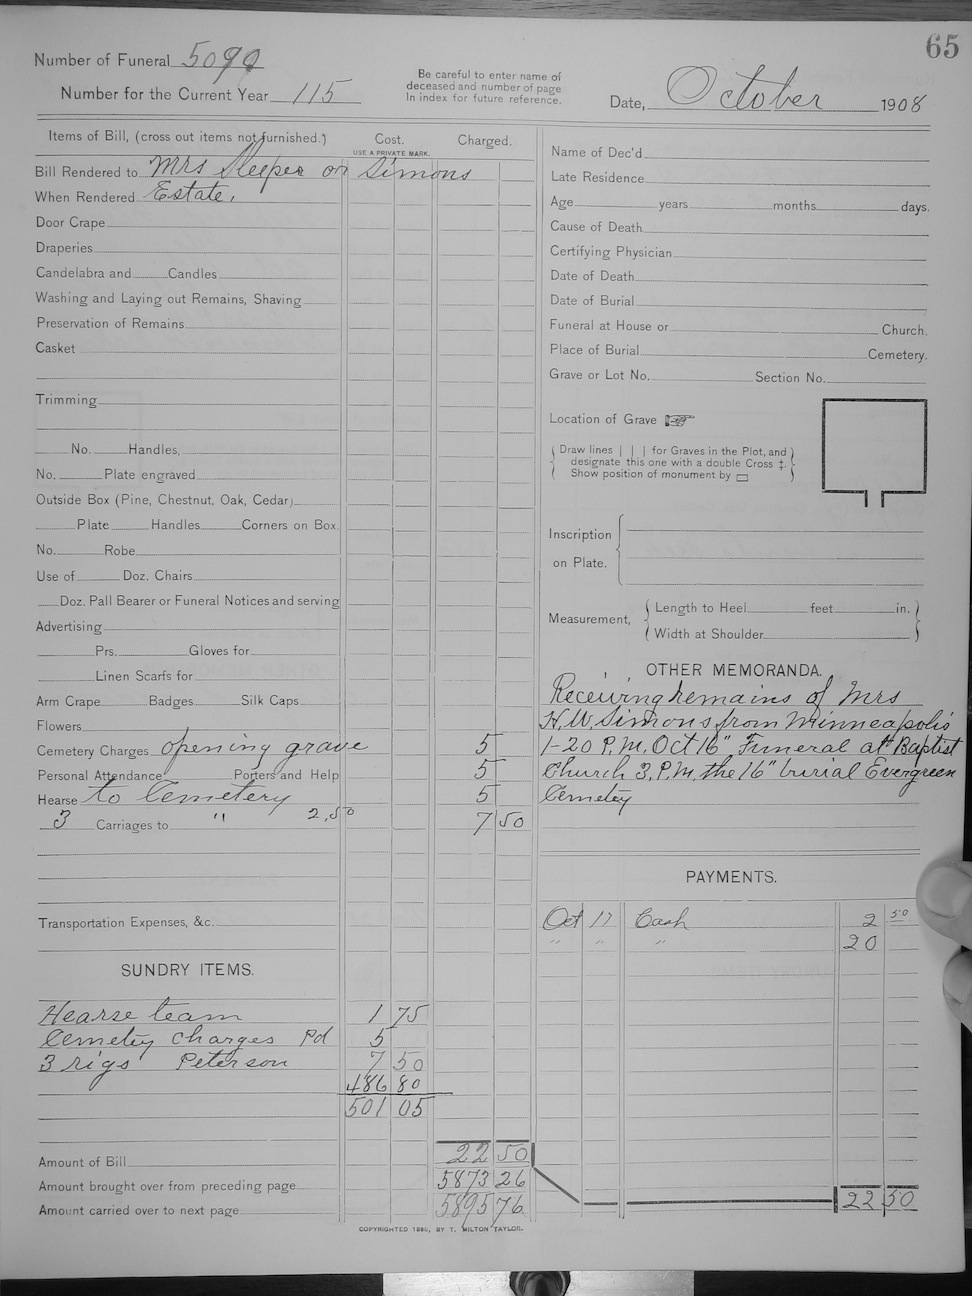 65
Number of Funeral 5090
Number for the Current Year 115
Be careful to enter name of
deceased and number of page
In index for future reference.
Date, October 1908
Items of Bill, (cross out items not furnished.) Cost. Charged.
USE A PRIVATE MARK.
Bill Rendered to Mrs Sleeper or Simons
When Rendered Estate.
Door Crape
Draperies
Candelabra and Candles
Washing and Laying out Remains, Shaving
Preservation of Remains
Casket
Trimming
No. Handles,
No. Plate engraved
Outside Box (Pine, Chestnut, Oak, Cedar)
Plate Handles Corners on Box.
No. Robe
Use of Doz. Chairs
Doz. Pall Bearer or Funeral Notices and serving
Advertising
Prs. Gloves for
Linen Scarfs for
Arm Crape Badges Silk Caps
Flowers
Cemetery Charges opening grave 5
Personal Attendance Porters and Help 5
Hearse to Cemetery 5
3 Carriages to " 2,50 7 50
Transportation Expenses, &c.
SUNDRY ITEMS.
Hearse team 1 75
Cemetey Charges Pd 5
3 rigs Peterson 7 50
486 80
501 05
Amount of Bill 22 50
Amount brought over from preceding page 5873 26
Amount carried over to next page 5895 76
Name of Dec'd
Late Residence
Age years months days.
Cause of Death
Certifying Physician
Date of Death
Date of Burial
Funeral at House or Church.
Place of Burial Cemetery.
Grave or Lot No. Section No.
Location of Grave
Draw lines | | | for Graves in the Plot, and
designate this one with a double Cross ‡.
Show position of monument by
Inscription
on Plate.
Measurement,
Length to Heel feet in.
Width at Shoulder
OTHER MEMORANDA.
Receiving remains of Mrs
H.W. Simons from Minneapolis
1-20 P.M. Oct 16" Funeral at Baptist
Church 3, P.M. the 16" burial Evergreen
Cemetey
PAYMENTS.
Oct 17 Cash 2 50
" " " 20
22 50
COPYRIGHTED 1890, BY T. MILTON TAYLOR.